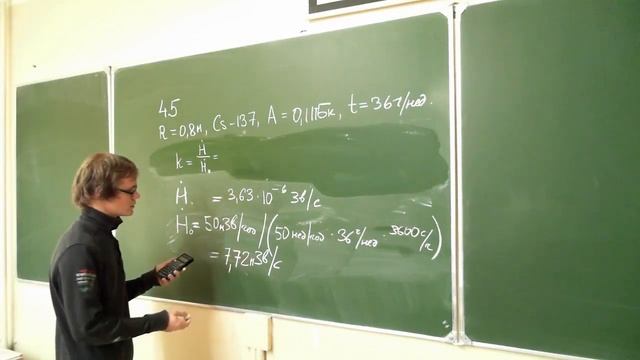 45
R = 0,8м, Cs-137, A = 0,1ПБк, t = 36ч/нед.
k = Ḣ/Ḣ₀ =
Ḣ = 3,63·10⁻⁶ Зв/с
Ḣ₀ = 50мЗв/год/(50нед/год · 36ч/нед · 3600с/ч)
= 7,72нЗв/с